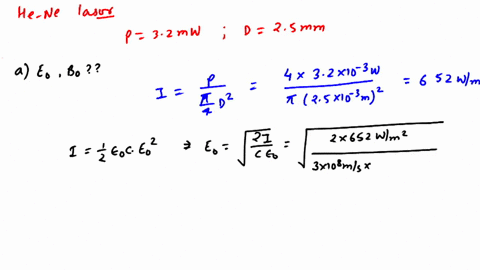 He-Ne laser
P = 3.2 mW ; D = 2.5 mm
a) E₀, B₀ ??
I = P / (π/4 D²) = 4 × 3.2×10⁻³ W / π (2.5×10⁻³ m)² = 652 W/m
I = 1/2 ε₀ c. E₀² ⇒ E₀ = √(2I / c ε₀) = √(2×652 W/m² / 3×10⁸ m/s ×